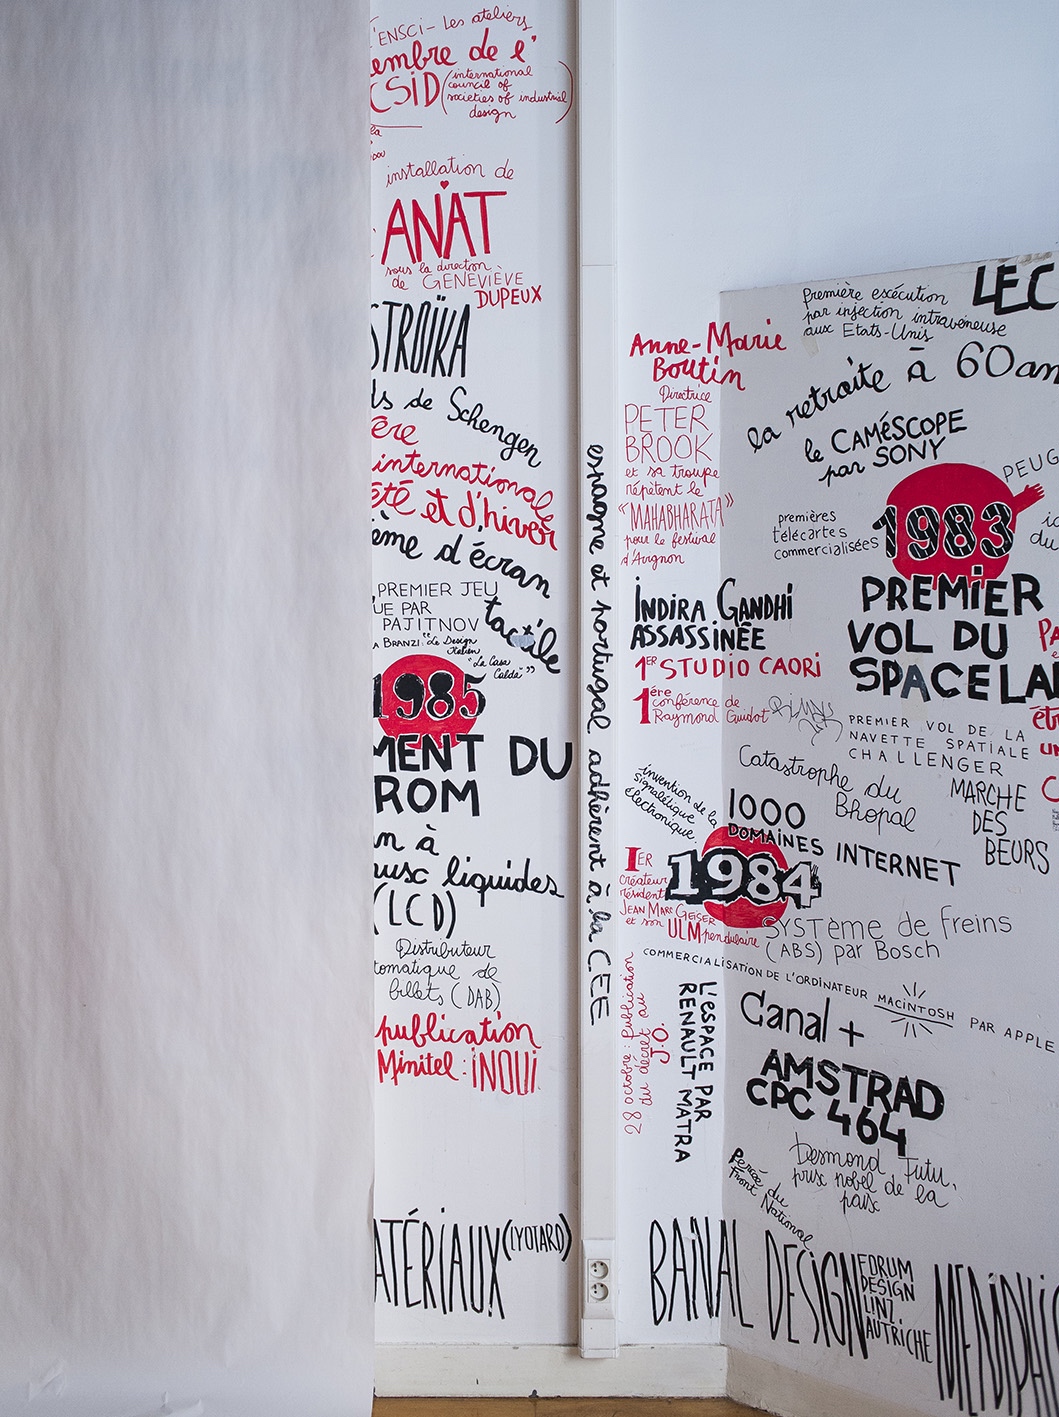 L'ENSCI - Les ateliers
embre de l'
CSID (international
council of
societies of industrial
design)
la
installation de
ANAT
sous la direction
de GENEVIÈVE
DUPEUX
STROÏKA
ds de Schengen
ère
internationale
été et d'hiver
ème d'écran
tactile
PREMIER JEU
UE PAR
PAJITNOV
A BRANZI "Le Design
Italien
"La Casa
Calda""
1985
MENT DU
ROM
n à
aux liquides
(LCD)
Distributeur
tomatique de
billets (DAB)
publication
Minitel: INOUI
ATÉRIAUX (LYOTARD)
espagne et portugal adhèrent à la CEE
Anne-Marie
Boutin
Directrice
PETER
BROOK
et sa troupe
répètent le
"MAHABHARATA"
pour le festival
d'Avignon
INDIRA GANDHI
ASSASSINÉE
1ER STUDIO CAORI
1ère conférence de
Raymond Guidot
invention de la
signalétique
électronique
1000
DOMAINES INTERNET
1984
1ER
créateur
résident
JEAN MARC GEISER
et son ULM pendulaire
SYSTème de freins
(ABS) par Bosch
COMMERCIALISATION DE L'ORDINATEUR MACINTOSH PAR APPLE
28 octobre: publication
du décret au
J.O.
L'eSPACE PAR
RENAULT MATRA
Canal +
AMSTRAD
CPC 464
Desmond Tutu,
prix nobel de la
paix
Percée du
Front National
BANAL DESIGN
FORUM
DESIGN
LINZ
AUTRICHE
MEMPHIS
LEC
première exécution
par injection intraveineuse
aux Etats-Unis
la retraite à 60 an
le CAMéSCOPE
par SONY
PEUG
premières
télécartes
commercialisées
1983
PREMIER
VOL DU
SPACELA
PREMIER VOL DE LA
NAVETTE SPATIALE
CHALLENGER
Catastrophe du
Bhopal
MARCHE
DES
BEURS